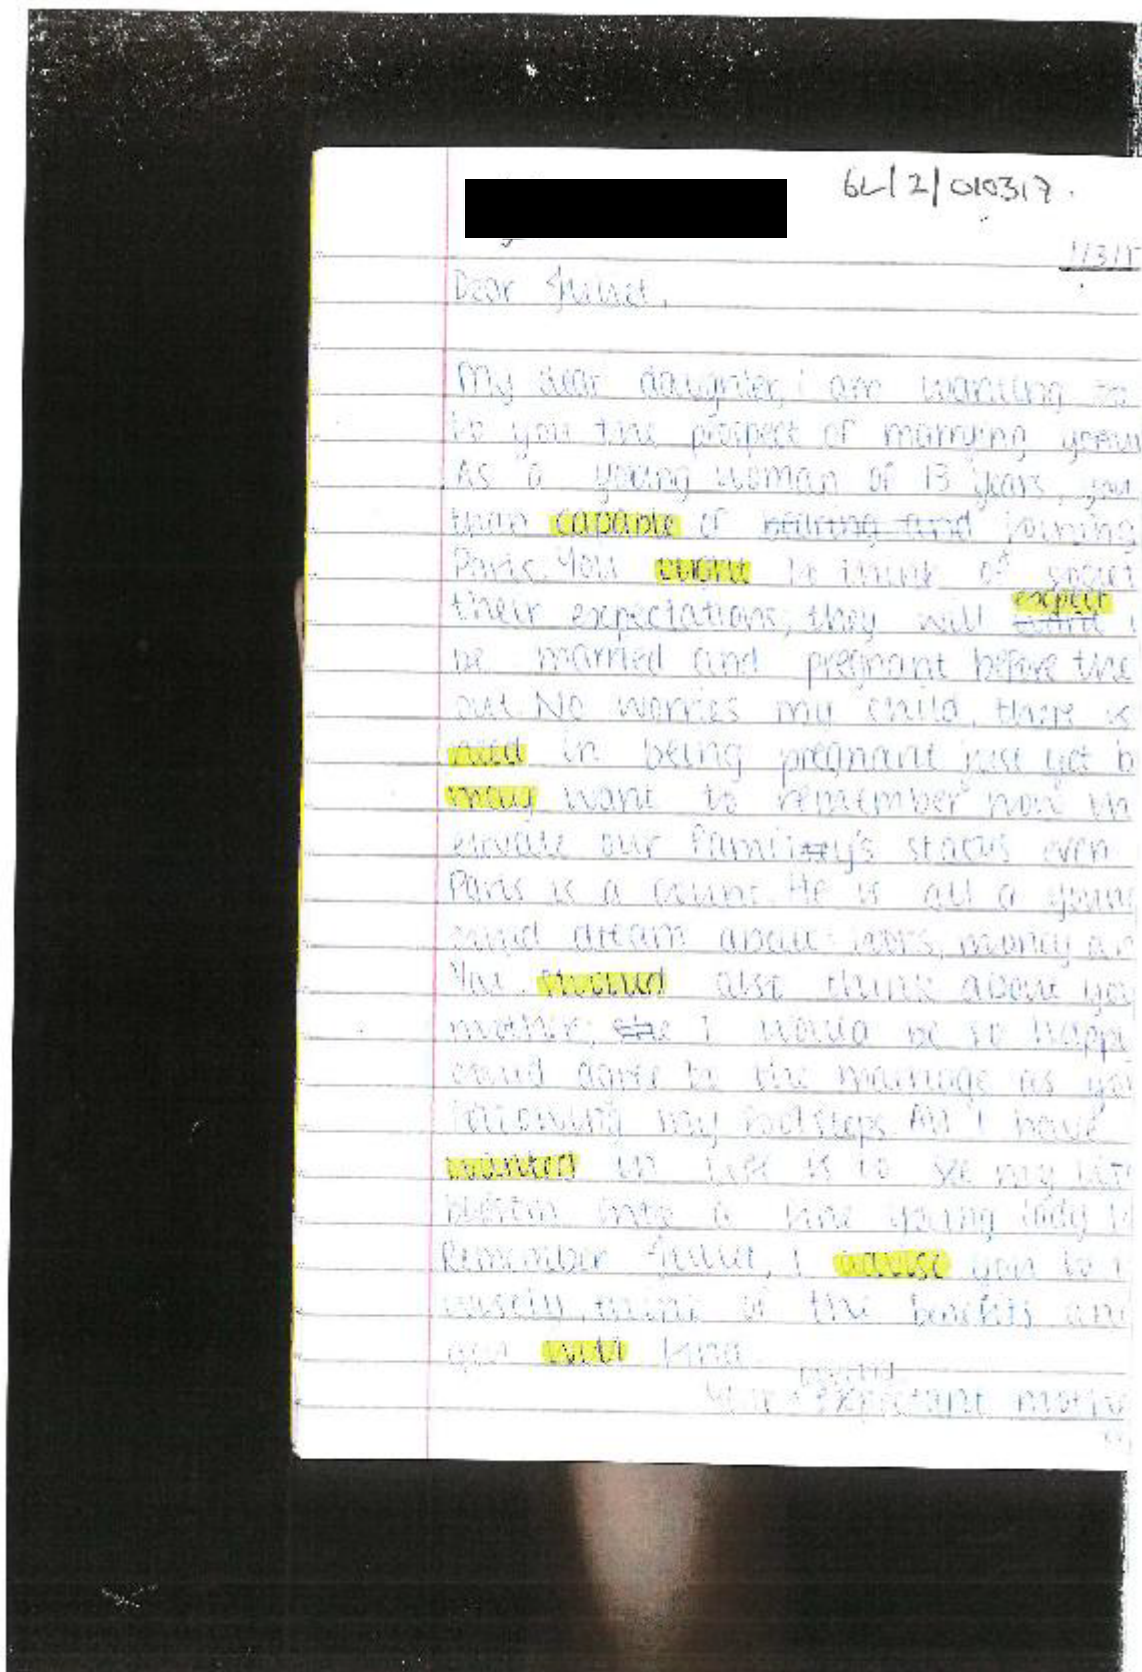 6L/2/010317.
1/3/1
Dear Juliet,
My dear daughter, I am wanting to
to you the prospect of marrying
As a young woman of 13 years, you
than capable of bearing and joining
Paris. You to think of societ
their expectations; they will expect
be married and pregnant before the
out. No worries my child, there is
need in being pregnant just yet b
may want to remember how
elevate our family's status even
Paris is a count. He is all a young
could dream about: looks, money an
You should also think about you
mother; she I would be so happ
could agree to the marriage as you
following my footsteps. All I have
wanted in life is to see my
blossom into a fine young lady
Remember Juliet, I advise you to
think of the benefits and
you will find.
Your expectant mothe